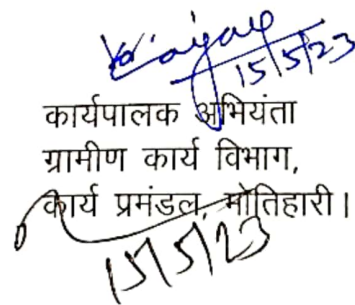 15/5/23
कार्यपालक अभियंता
ग्रामीण कार्य विभाग,
कार्य प्रमंडल, मोतिहारी।
15/5/23